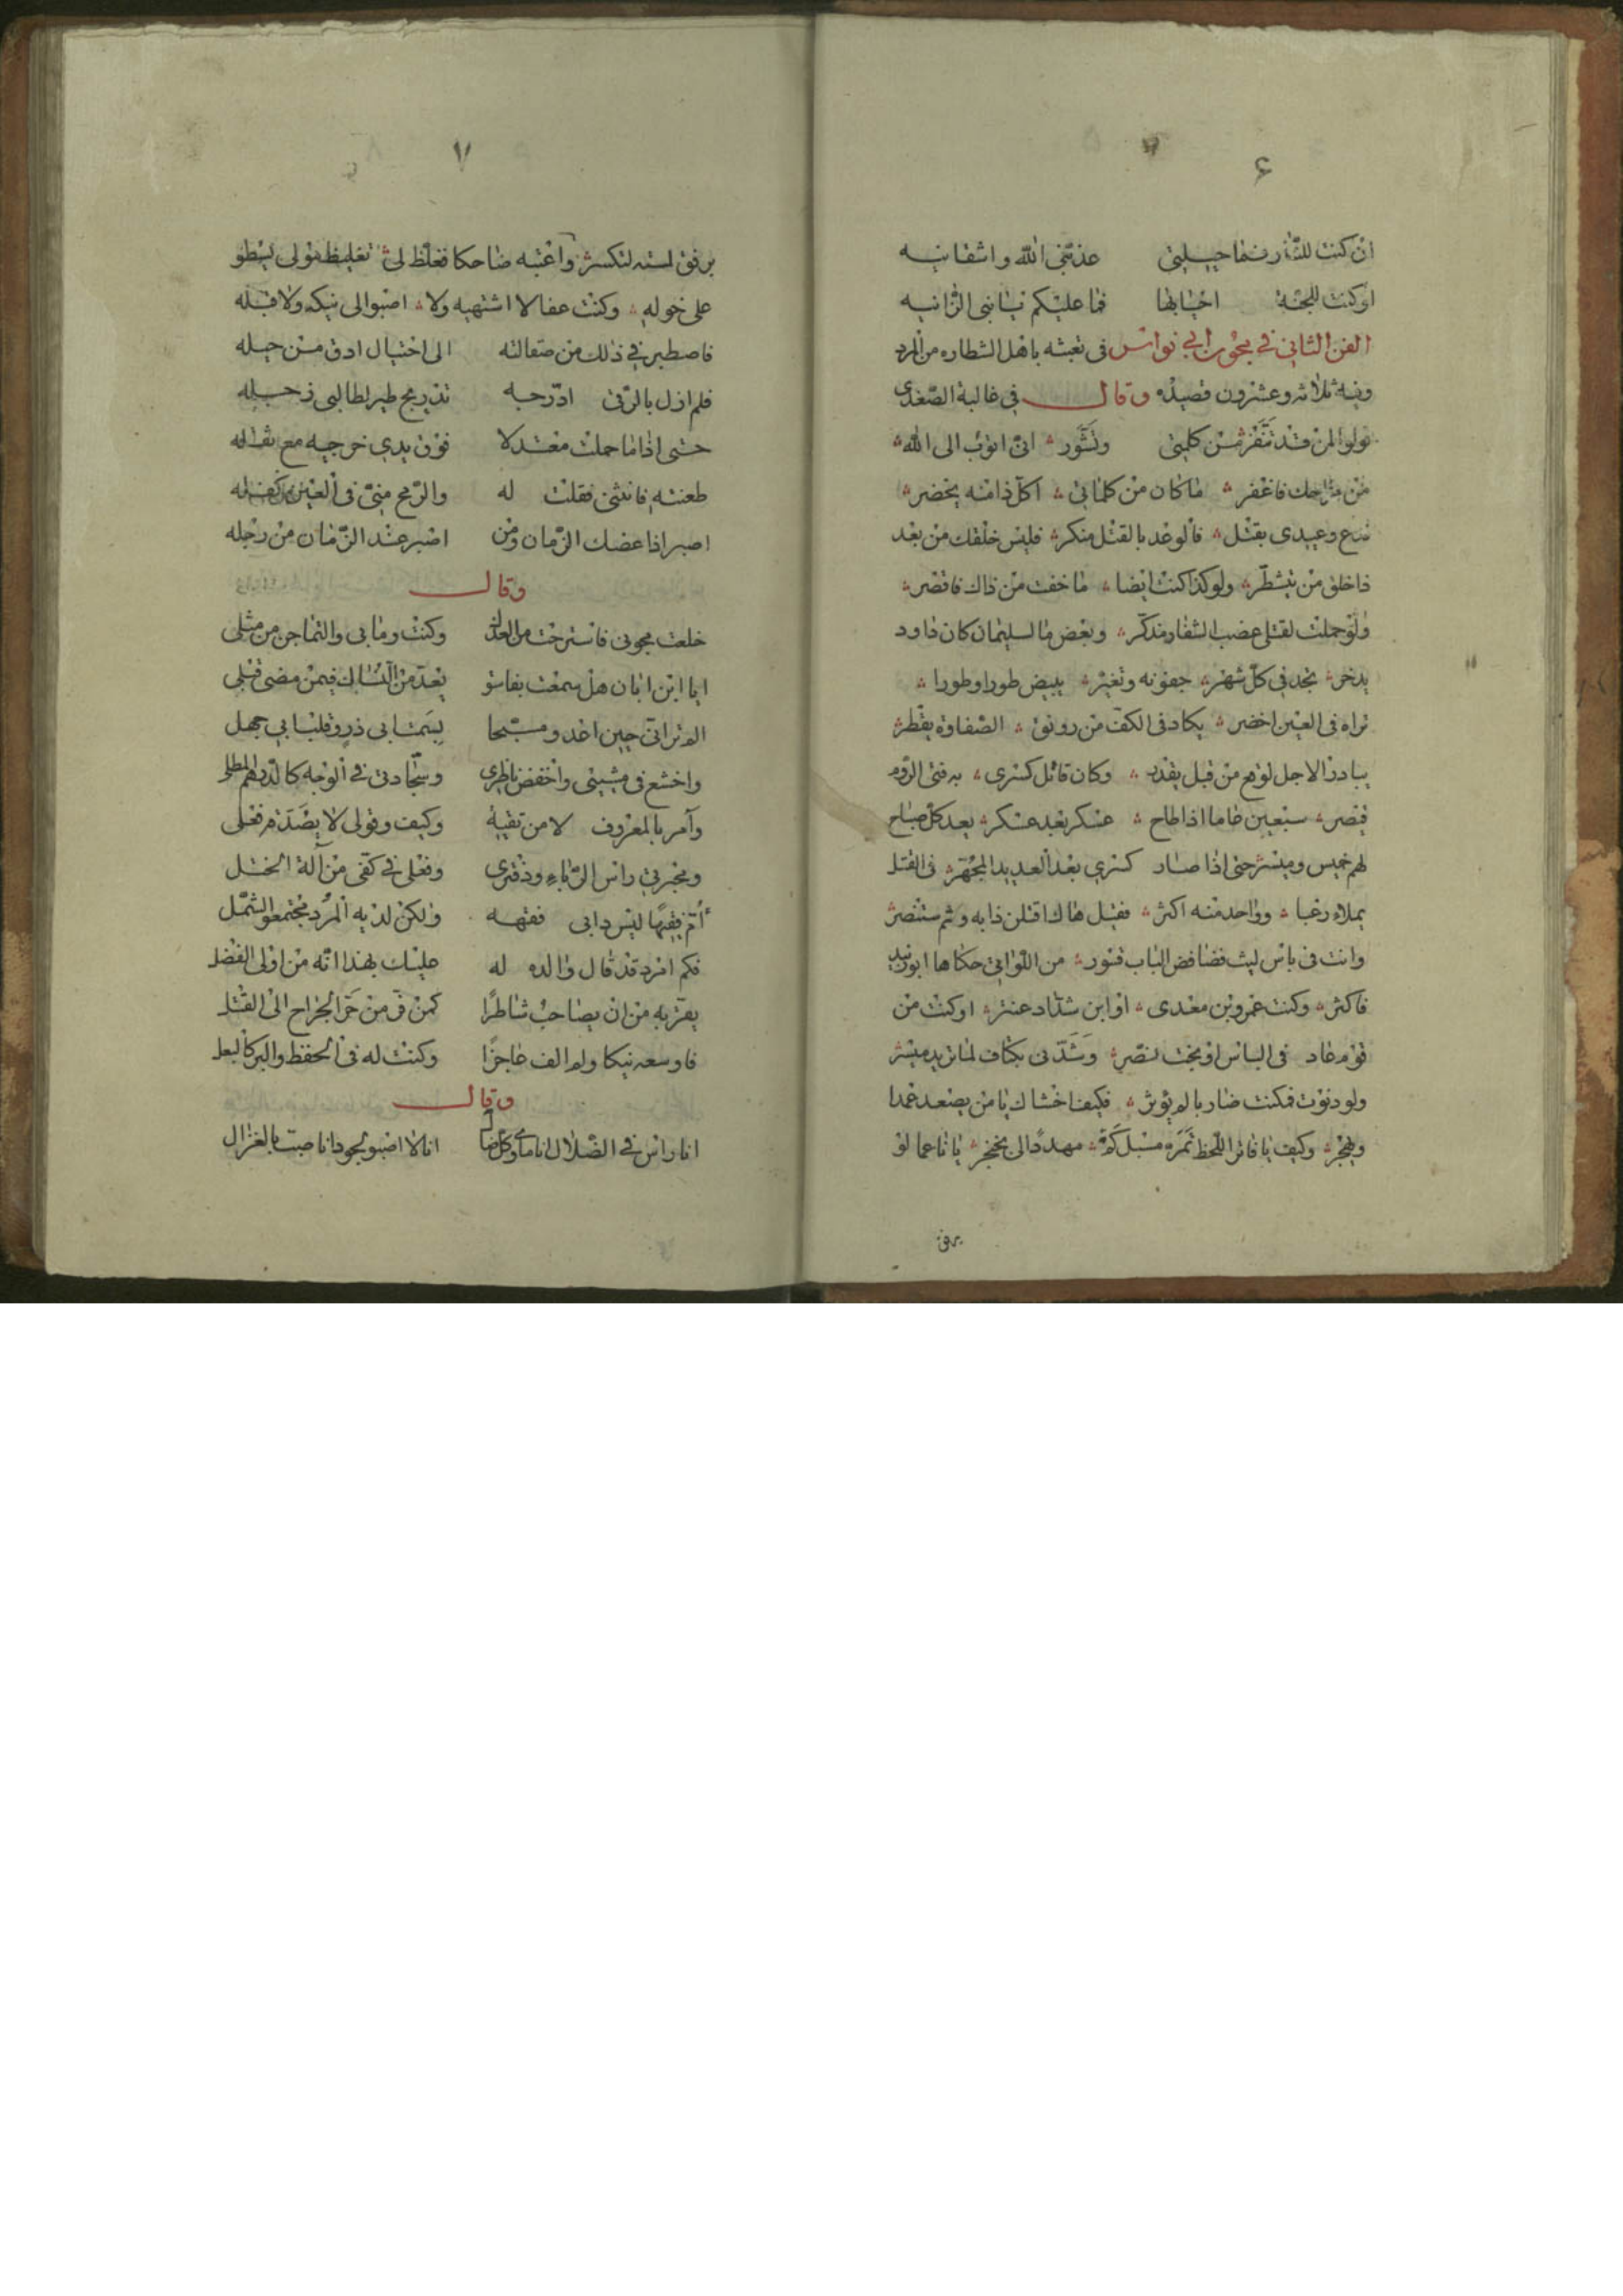 ۶
ان كنت للنار فما حيلتي عذبني الله واشقانيه
او كنت للجنة احيا بها فما عليكم يا بني الزانيه
الفن الثاني في مجون ابي نواس في تعبثه باهل الشطاره من المرد
وفيه ثلاثه وعشرون قصيده وقال في غالبة الصغدى
قولوا لمن قد تنفر من كلمتي وتشور انى اتوب الى الله
من مزاحك فاغفر ما كان من كلماتى اكل ذا منه يخضر
تدع وعيدى بقتل فالوعد بالقتل منكر فليس خلفك من بعد
ذا خلق من يتشطر ولو كذا كنت ايضا ما خفت من ذاك فاقصر
ولو حملت لقتلى عضب الشفار مذكر وبعض ما لسليمان كان داود
يدخر تجد في كل شهر جفونه وتغير يبيض طورا وطورا
تراه فى العين اخضر يكاد فى الكف من رونق الصفاوة يقطر
يبادر الاجل لوقع من قبل يقدر وكان قاتل كسرى به فتى الروم
قيصر سبعين عاما اذا طاح عسكر بعد عسكر يعد كل صباح
لهم خميس وميسر حتى اذا صار كسري بعد العديد المجهر فى القتل
يملاء رعبا وواحد منه اكثر فقيل هاك اقتلن ذا به وثم ستنصر
وانت فى باس ليث فضافض الناب قسور من اللواتي حكاها ابو زبيد
فاكثر وكنت عمرو بن معدى او ابن شداد عنتر او كنت من
قوم عاد فى الباس او بخت نصر وشدنى بكتاف لما تريد ميسر
ولو دنوت فكنت ضاربا لم يوثر فكيف اخشاك يا من يصعد عمدا
ويهجر وكيف يا فاتر اللحظ ثمره مسبل كمه مهددا لى بخنجر يا ناعما لو
برفق
۷
برفق استه لتكسر واغتبه ضاحكا فغلظ لى تغليظ مولى يسطو
على خوله وكنت عفا لا اشتهيه ولا اصبوا الى نيكه ولا قبله
فاصطبرنى ذلك من مقالته الى احتيال ادق من حيله
فلم ازل بالرقى ادرجه تدريج طير لطالبى زحيله
حتى اذا ما حملت معتدلا فوق يدي خرجيه مع ثقاله
طعنته فانثنى فقلت له والرمح منى فى العين
اصبر اذا عضك الزمان ومن اصبر عند الزمان من رجله
وقال
خلعت مجونى فاسترحت من العذل وكنت وما بى والتماجن من مثلى
ايا ابن ابان هل سمعت بفاسق يعد من النساك فيمن مضى قبلى
الم تر اني حين اغدو مسبحا بسمت ابى ذر وقلب ابي جهل
واخشع فى مشيتى واخفض ناظري وسجادتى في الوجه كالدرهم المطلى
وآمر بالمعروف لا من تقية وكيف وقولى لا يصدقه فعلى
ومحبرتي راس الرياء ودفترى وفعلى في كفى من آلة الختل
أؤم فقيها ليس دابى فقهه ولكن لديه المرد مجتمعو الشمل
فكم امرد قد قال والده له عليك بهذا انه من اولى الفضل
يفر به من ان يصاحب شاطرا كمن فر من حر الجراح الى القتل
فاوسعه نيكا ولم الف عاجزا وكنت له فى الحفظ والبر كالبعل
وقال
انا راس في الضلال انا ماوى كل ضال انا لا اصبو لخود انا صب بالغزال